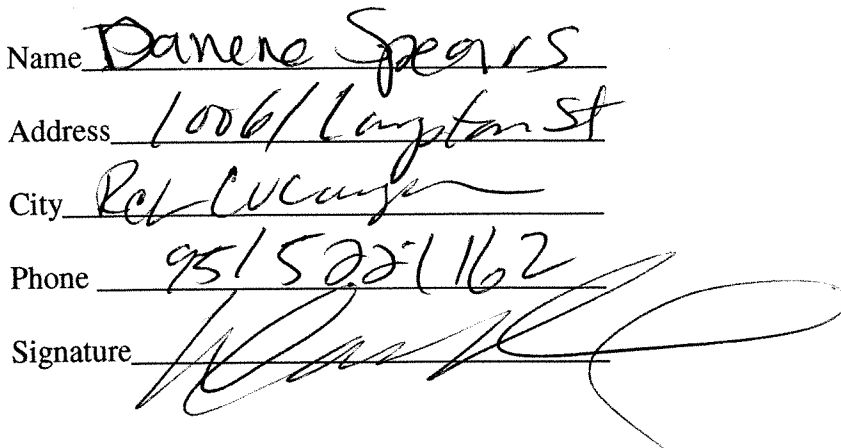 Name Danene Spears
Address 10061 Langston St
City Rch Cucamonga
Phone 951 522-1162
Signature